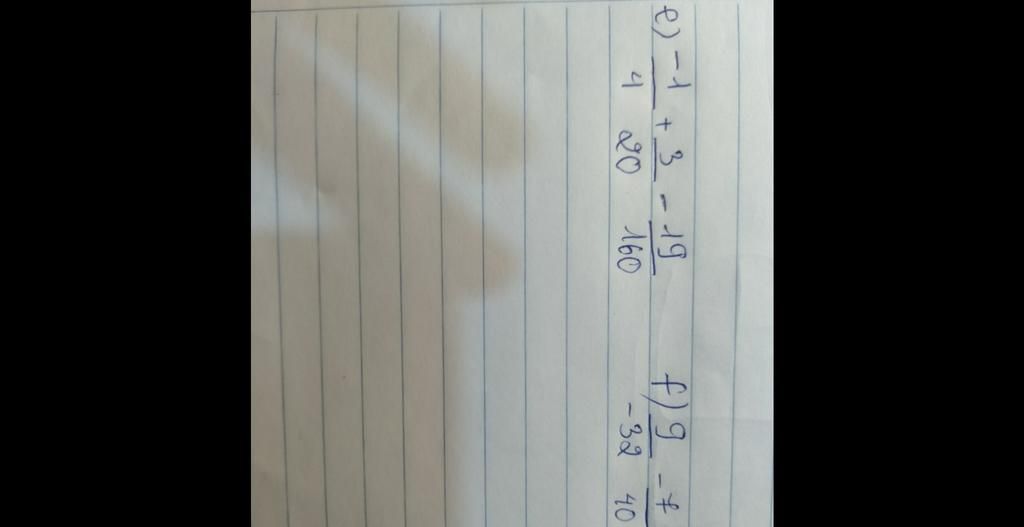 e) -1/4 + 3/20 - 19/160
f) 9/-32 - 7/40